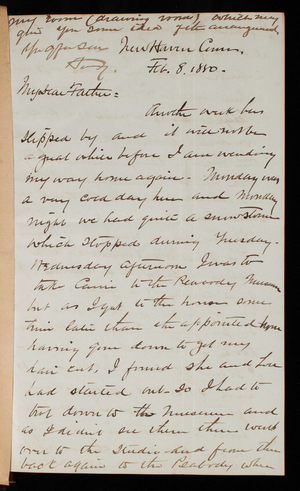 my room (drawing room) which may
give you some idea of the arrangement
Yr aff son New Haven Conn.
Feb. 8. 1880.
My dear Father:
Another week has
slipped by and it will not be
a great while before I am wending
my way home again. Monday was
a very cold day here and Monday
night we had quite a snow storm
which stopped during Tuesday.
Wednesday afternoon I was to
take Carrie to the Peabody Museum
but as I got to the house some
time later than the appointed hour
having gone down to get my
hair cut, I found she and
had started out. So I had to
trot down to the Museum and
as I didn't see them there went
over to the Studio and from there
back again to the Peabody when